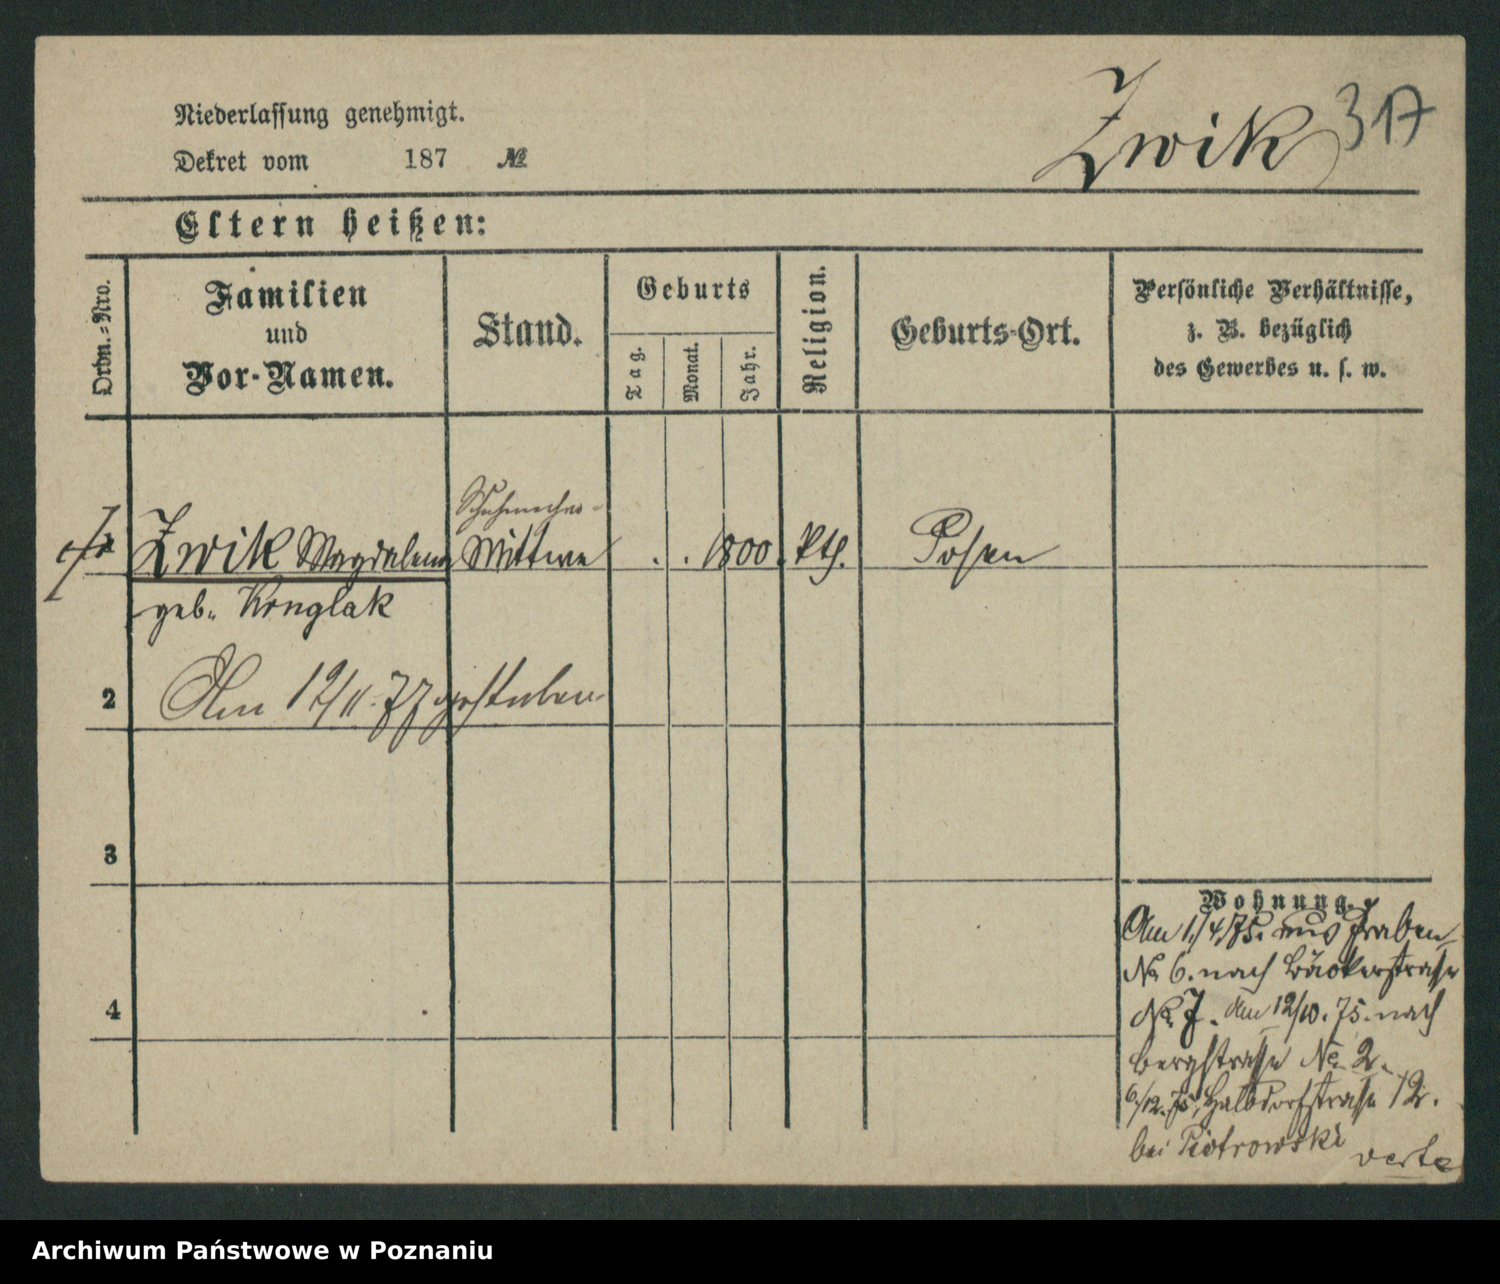 Niederlassung genehmigt.
Dekret vom 187 №
Zwik 317
Eltern heißen:
Ordn.-Nro.
Familien
und
Vor-Namen.
Stand.
Geburts
Tag.
Monat.
Jahr.
Religion.
Geburts-Ort.
Persönliche Verhältnisse,
z. B. bezüglich
des Gewerbes u. s. w.
Schuhmacher-
Zwik Magdalena Wittwe . . 1800. kth. Posen
geb. Konglak
2 Am 12/11. 77 gestorben
3
4
Wohnung.
Am 1./4.75. aus Graben
№ 6. nach Bäckerstrasse
№ 7. Am 12/10. 75. nach
Bergstrasse № 2.
6/12. 75, Halbdorfstrasse 12.
bei Piotrowski
verte
Archiwum Państwowe w Poznaniu